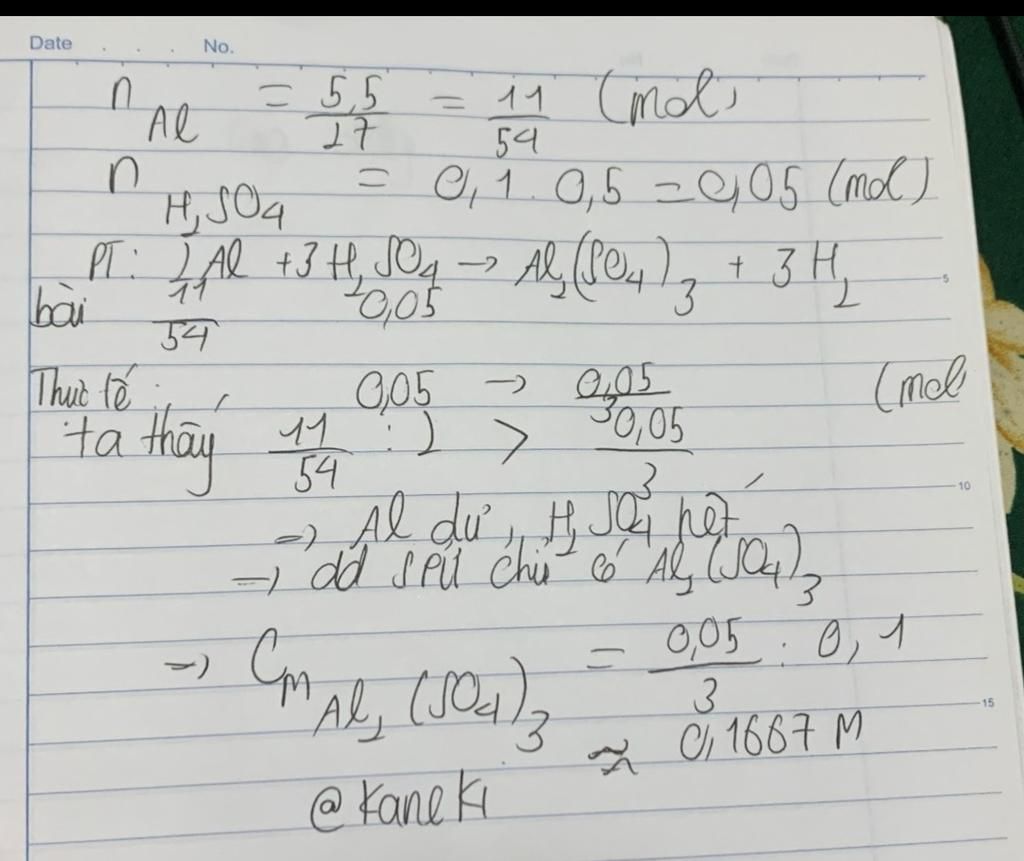 Date . . . No.
n Al = 5,5/27 = 11/54 (mol)
n H2SO4 = 0,1 . 0,5 = 0,05 (mol)
PT: 2Al + 3H2SO4 → Al2(SO4)3 + 3H2
5
bài 11/54 0,05
Thực tế : 0,05 → 0,05/3 (mol
ta thấy 11/54 : 2 > 0,05/3
10
⇒ Al dư, H2SO4 hết
⇒ dd spứ chứ có Al2(SO4)3
⇒ CM Al2(SO4)3 = 0,05/3 : 0,1
15
≈ 0,1667 M
@Kaneki